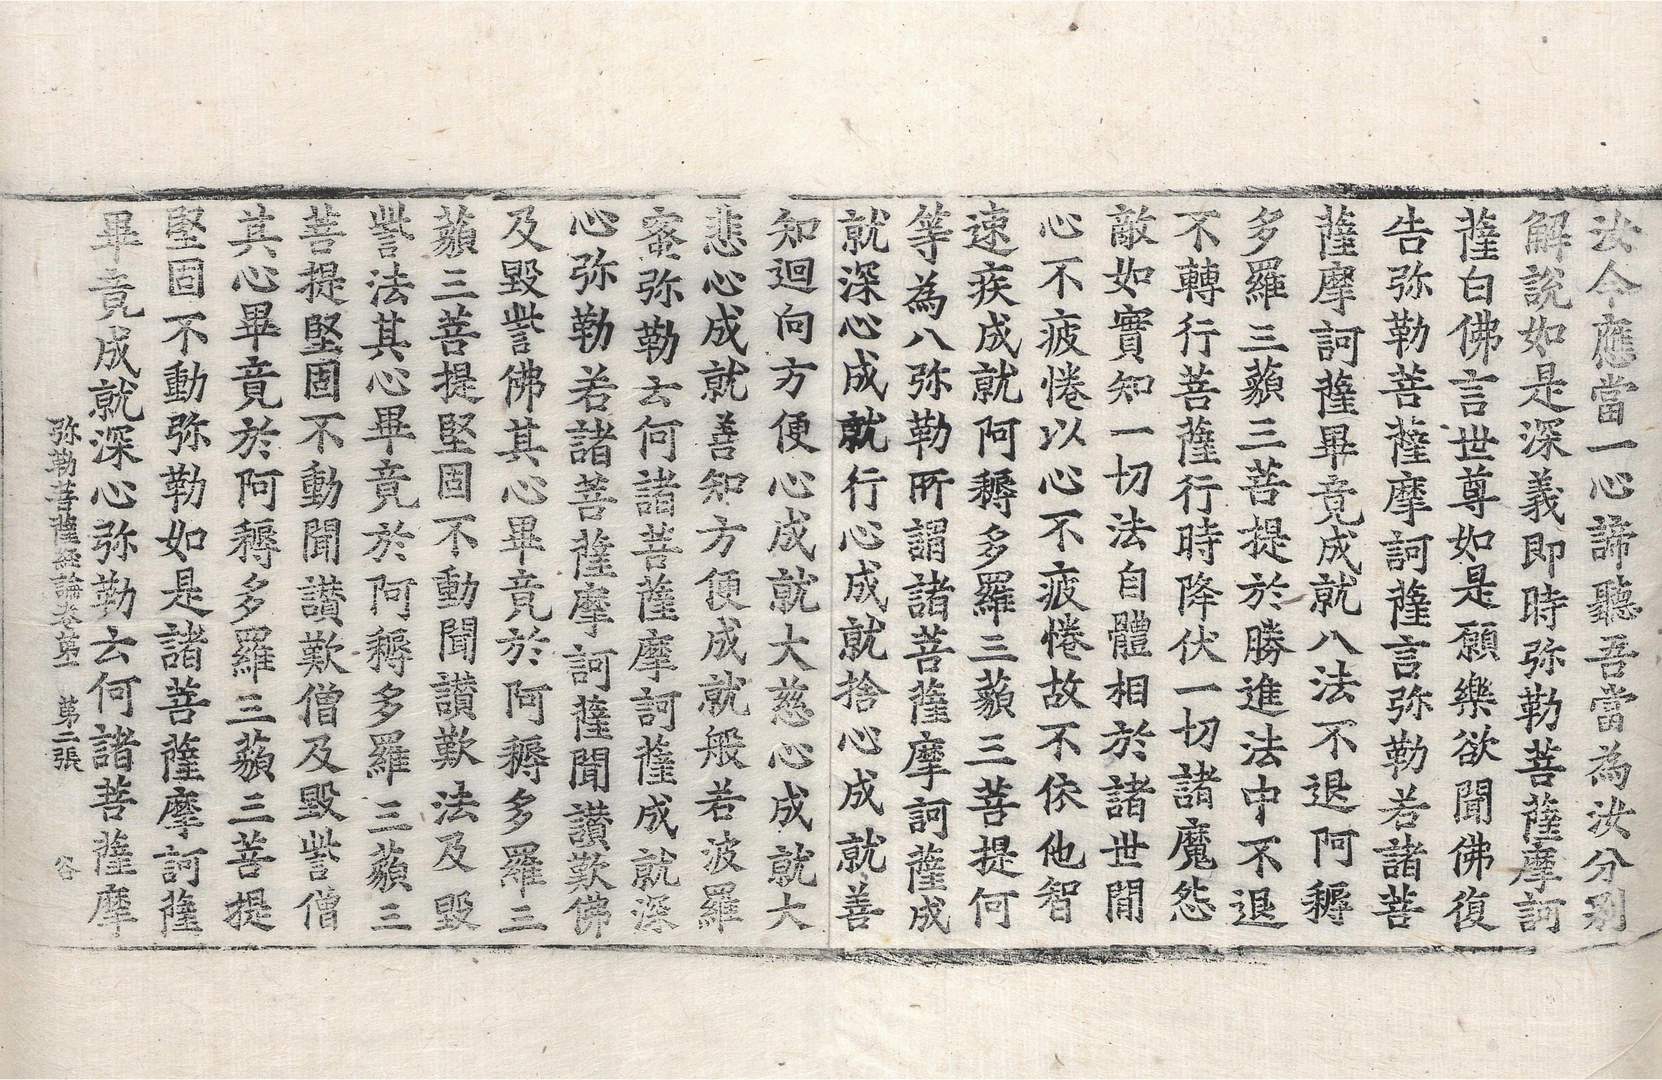 汝今應當一心諦聽吾當為汝分別
解說如是深義即時弥勒菩薩摩訶
薩白佛言世尊如是願樂欲聞佛復
告弥勒菩薩摩訶薩言弥勒若諸菩
薩摩訶薩畢竟成就八法不退阿耨
多羅三藐三菩提於勝進法中不退
不轉行菩薩行時降伏一切諸魔怨
敵如實知一切法自體相於諸世間
心不疲惓以心不疲惓故不依他智
速疾成就阿耨多羅三藐三菩提何
等為八弥勒所謂諸菩薩摩訶薩成
就深心成就行心成就捨心成就善
知迴向方便心成就大慈心成就大
悲心成就善知方便成就般若波羅
蜜弥勒云何諸菩薩摩訶薩成就深
心弥勒若諸菩薩摩訶薩聞讃歎佛
及毀訾佛其心畢竟於阿耨多羅三
藐三菩提堅固不動聞讃歎法及毀
訾法其心畢竟於阿耨多羅三藐三
菩提堅固不動聞讃歎僧及毀訾僧
其心畢竟於阿耨多羅三藐三菩提
堅固不動弥勒如是諸菩薩摩訶薩
畢竟成就深心弥勒云何諸菩薩摩
弥勒菩薩経論卷第一 第二張 谷